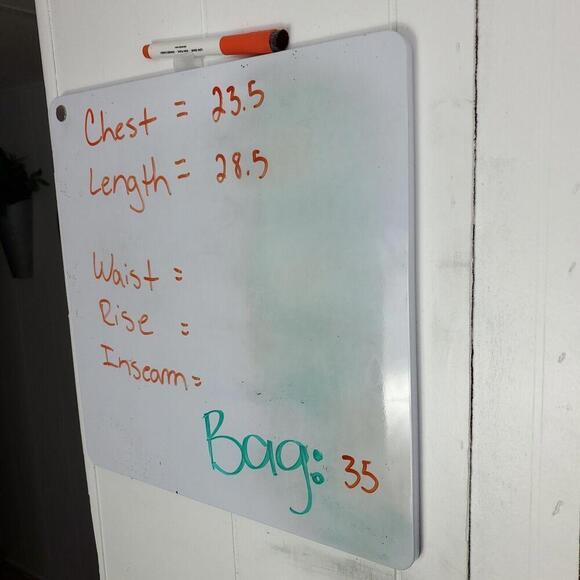 Chest = 23.5
Length = 28.5
Waist =
Rise =
Inseam =
Bag: 35